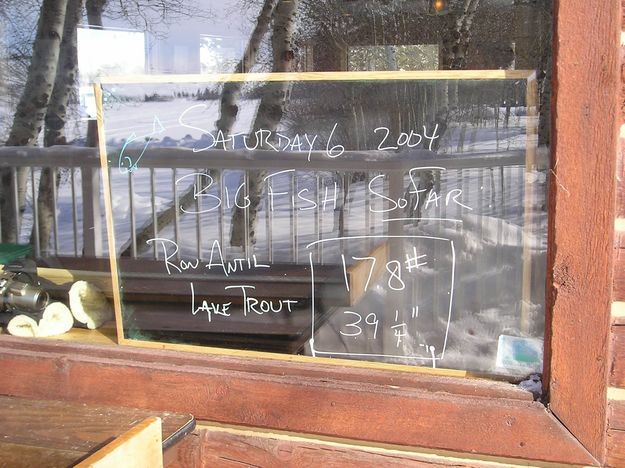 SATURDAY 6 2004
BIG FISH SOFAR
RON ANTIL
LAKE TROUT
178#
39 1/4"